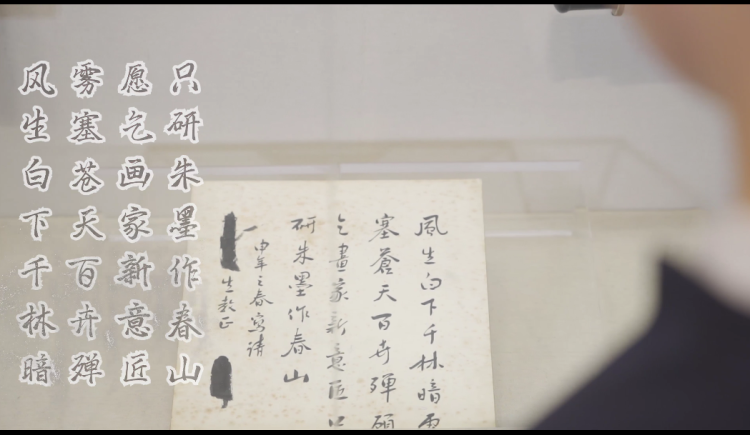 风生白下千林暗
雾塞苍天百卉殚
愿乞画家新意匠
只研朱墨作春山
風生白下千林暗
塞蒼天百卉殫願
乞畫家新意匠
研朱墨作春山
申年之春寫請
生教正